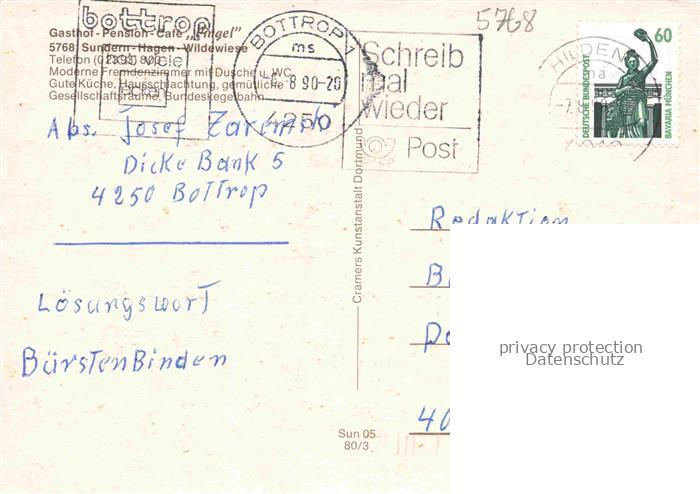 Gasthof - Pension - Café „Pingel"
5768 Sundern-Hagen-Wildewiese
Telefon (02393) 800
Moderne Fremdenzimmer mit Dusche u. WC,
Gute Küche, Hausschlachtung, gemütliche
Gesellschaftsräume, Bundeskegelbahn
bottrop
viele
BOTTROP 1
ms
8 90-20
4250
Schreib
mal
wieder
Post
5768
HILDEN
60
DEUTSCHE BUNDESPOST
BAVARIA MÜNCHEN
Abs. Josef
Dicke Bank 5
4250 Bottrop
Lösungswort
BürstenBinden
Cramers Kunstanstalt Dortmund
Sun 05
80/3
Redaktion
40
privacy protection
Datenschutz